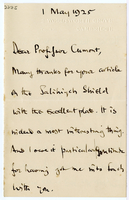 1 May 1925
Dear Professor Cumont,
Many thanks for your article
on the Salihiyeh Shield
with the excellent plate. It is
indeed a most interesting thing.
And I owe it particular gratitude
for having got me into touch
with you.